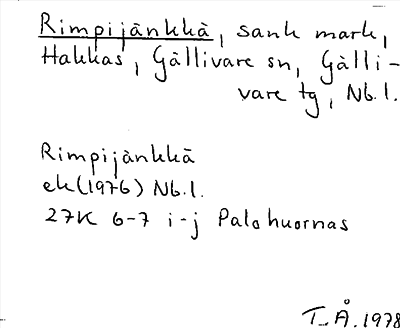 Rimpijänkkä, sank mark,
Hakkas, Gällivare sn, Gälli-
vare tg, Nb.l.
Rimpijänkkä
ek(1976) Nb.l.
27K 6-7 i-j Palohuornas
T. Å. 1978